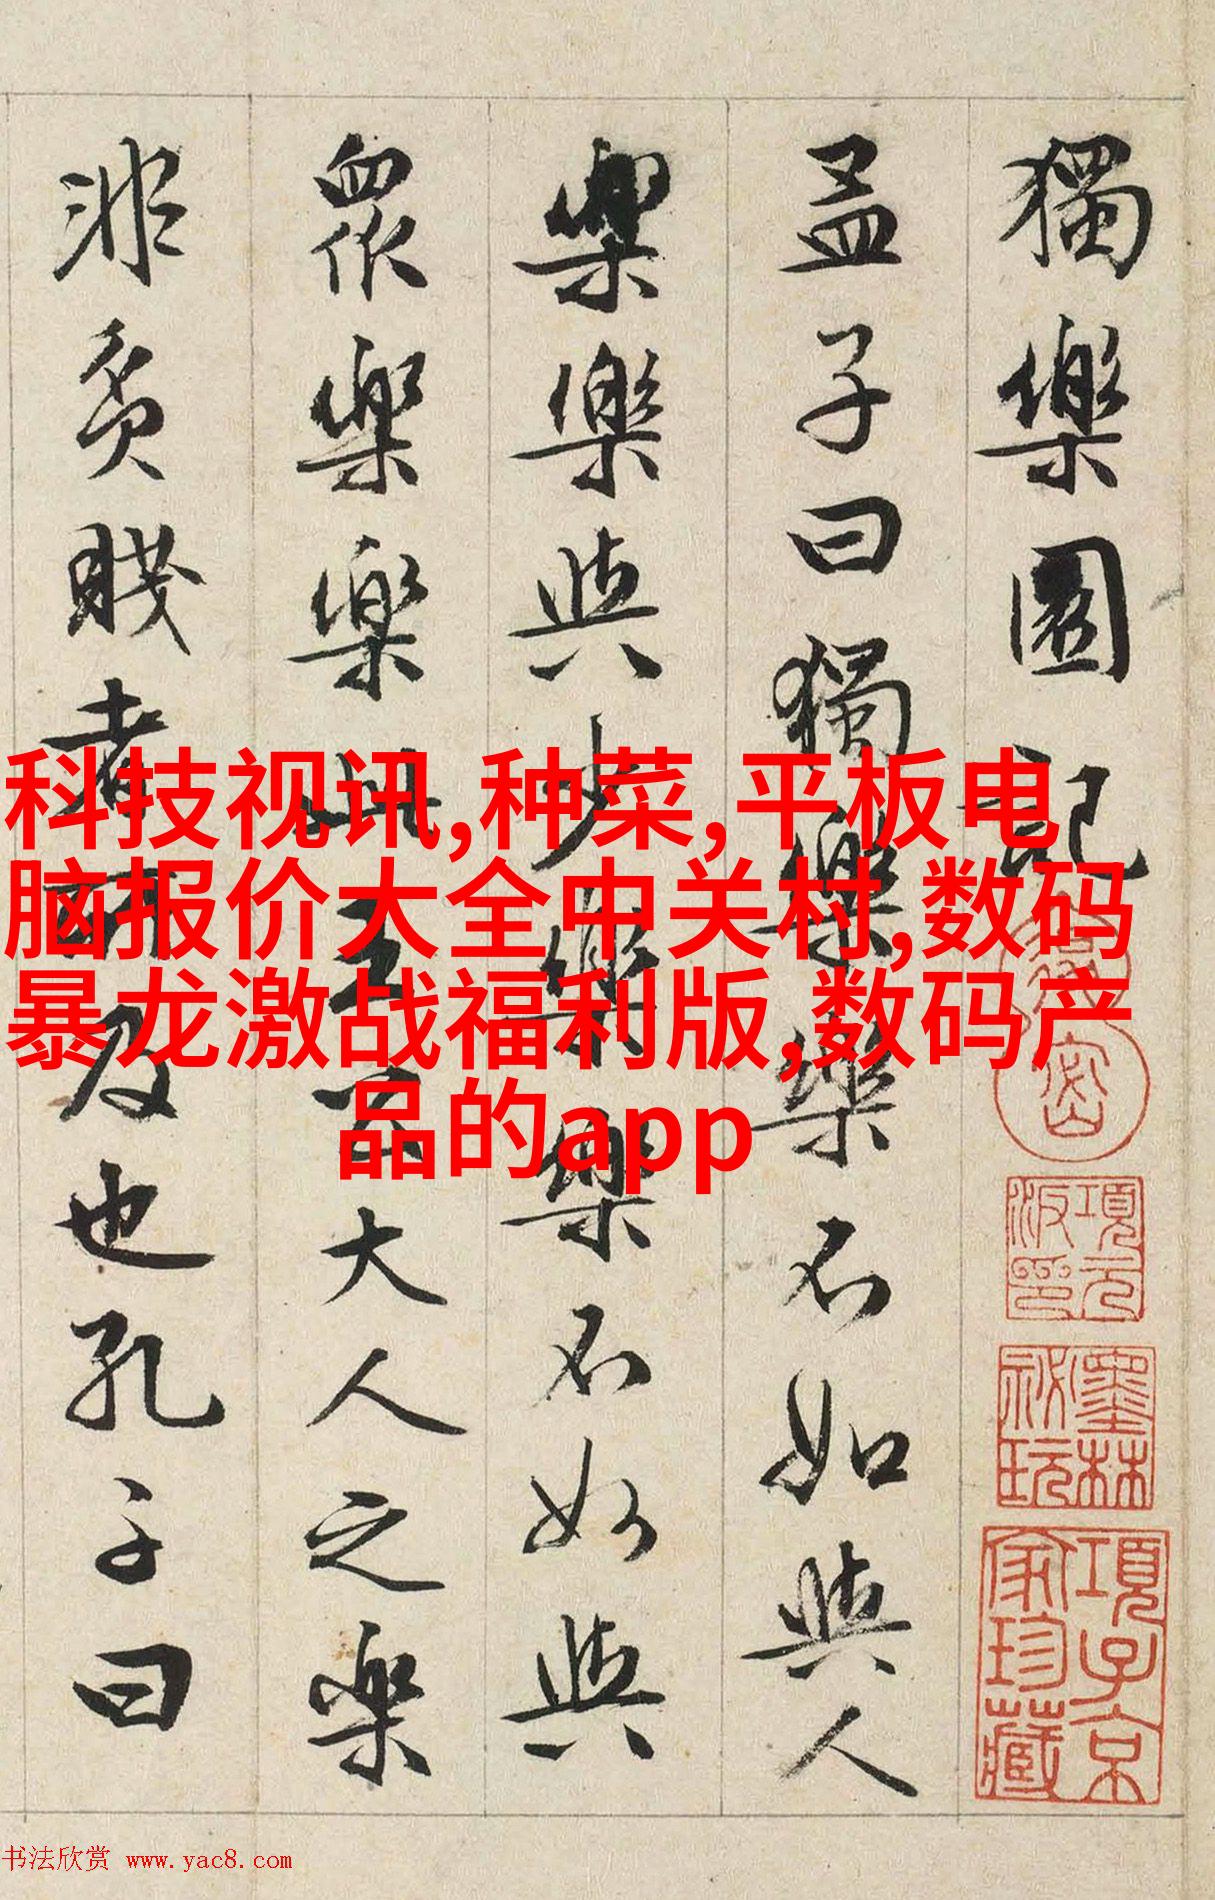 獨樂園記
孟子曰獨樂樂不如與人
樂樂與少樂樂不如與
眾樂樂此王公大人之樂
非貧賤者所及也孔子曰
項元汴印
墨林秘玩
項子京家珍藏
科技视讯,种菜,平板电
脑报价大全中关村,数码
暴龙激战福利版,数码产
品的app
书法欣赏 www.yac8.com